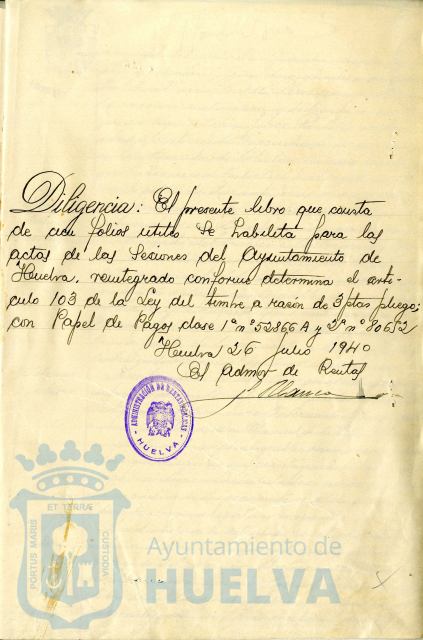 Diligencia: El presente libro que consta
de cien folios utiles se habilita para las
actas de las Sesiones del Ayuntamiento de
Huelva, reintegrado conforme determina el arti-
culo 103 de la Ley del timbre a razón de 3 ptas pliego;
con Papel de Pagos clase 1ª nº 52866 A y 2ª nº 80652
Huelva 26 Julio 1940
El Admor de Rentas
Blanco
ADMINISTRACIÓN DE RENTAS PÚBLICAS
HUELVA
ET TERRÆ
PORTUS MARIS
CUSTODIA
Ayuntamiento de
HUELVA